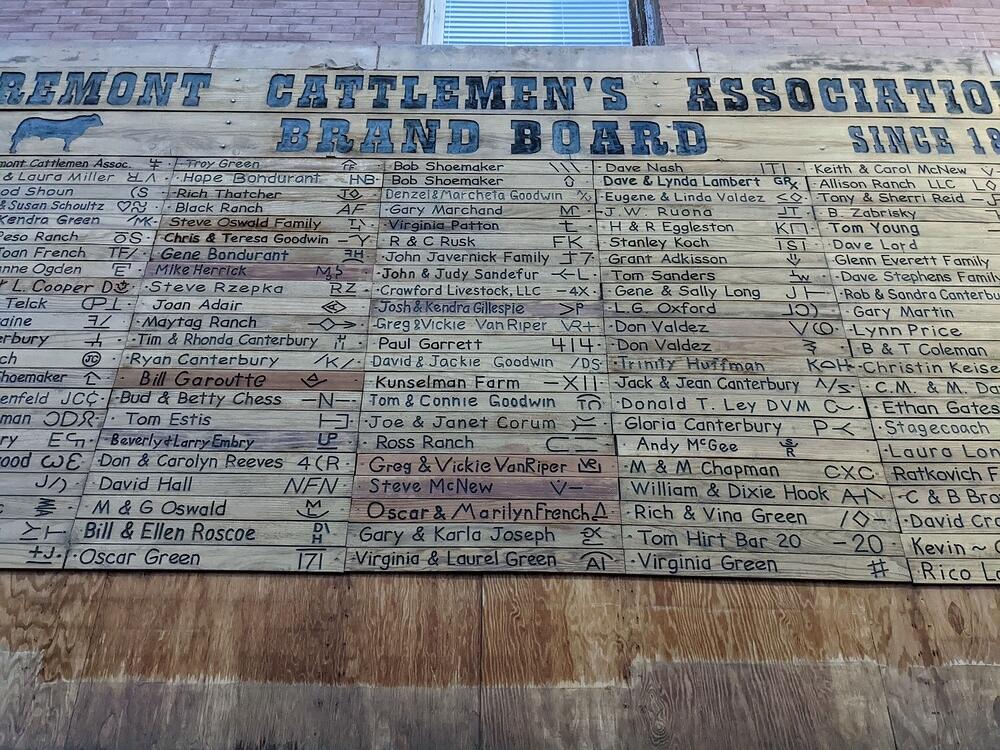 REMONT CATTLEMEN'S ASSOCIATIO
BRAND BOARD SINCE 18
mont Cattlemen Assoc.
& Laura Miller
od Shoun (S
& Susan Schoultz
Kendra Green
Peso Ranch
Joan French TF/
nne Ogden
L. Cooper
Telck
aine
erbury
ch JC
Shoemaker
enfeld JC
man
ry
ood
Troy Green
Hope Bondurant HB
Rich Thatcher
Black Ranch AF
Steve Oswald Family
Chris & Teresa Goodwin –Y
Gene Bondurant
Mike Herrick
Steve Rzepka RZ
Joan Adair
Maytag Ranch
Tim & Rhonda Canterbury
Ryan Canterbury /K/
Bill Garoutte
Bud & Betty Chess –N–
Tom Estis
Beverly & Larry Embry
Don and Carolyn Reeves 4(R
David Hall NFN
M & G Oswald
Bill & Ellen Roscoe
Oscar Green
Bob Shoemaker \\\
Bob Shoemaker
Denzel & Marcheta Goodwin
Gary Marchand
Virginia Patton
R & C Rusk FK
John Javernick Family
John & Judy Sandefur
Crawford Livestock, LLC –4X
Josh & Kendra Gillespie >P
Greg & Vickie Van Riper VR+
Paul Garrett 414
David & Jackie Goodwin /DS
Kunselman Farm –XII
Tom & Connie Goodwin
Joe & Janet Corum
Ross Ranch
Greg & Vickie VanRiper
Steve McNew V–
Oscar & Marilyn French
Gary & Karla Joseph
Virginia & Laurel Green
Dave Nash
Dave & Lynda Lambert
Eugene & Linda Valdez
J.W. Ruona
H & R Eggleston
Stanley Koch
Grant Adkisson
Tom Sanders
Gene & Sally Long
L.G. Oxford
Don Valdez
Don Valdez
Trinity Huffman
Jack & Jean Canterbury
Donald T. Ley DVM
Gloria Canterbury
Andy McGee
M & M Chapman CXC
William & Dixie Hook
Rich & Vina Green /◇–
Tom Hirt Bar 20 –20
Virginia Green #
Keith & Carol McNew
Allison Ranch LLC
Tony & Sherri Reid
B. Zabrisky
Tom Young
Dave Lord
Glenn Everett Family
Dave Stephens Family
Rob & Sandra Canterbu
Gary Martin
Lynn Price
B & T Coleman
Christin Keise
C.M. & M. Da
Ethan Gates
Stagecoach
Laura Lon
Ratkovich F
C & B Bro
David Cro
Kevin ~
Rico Lo